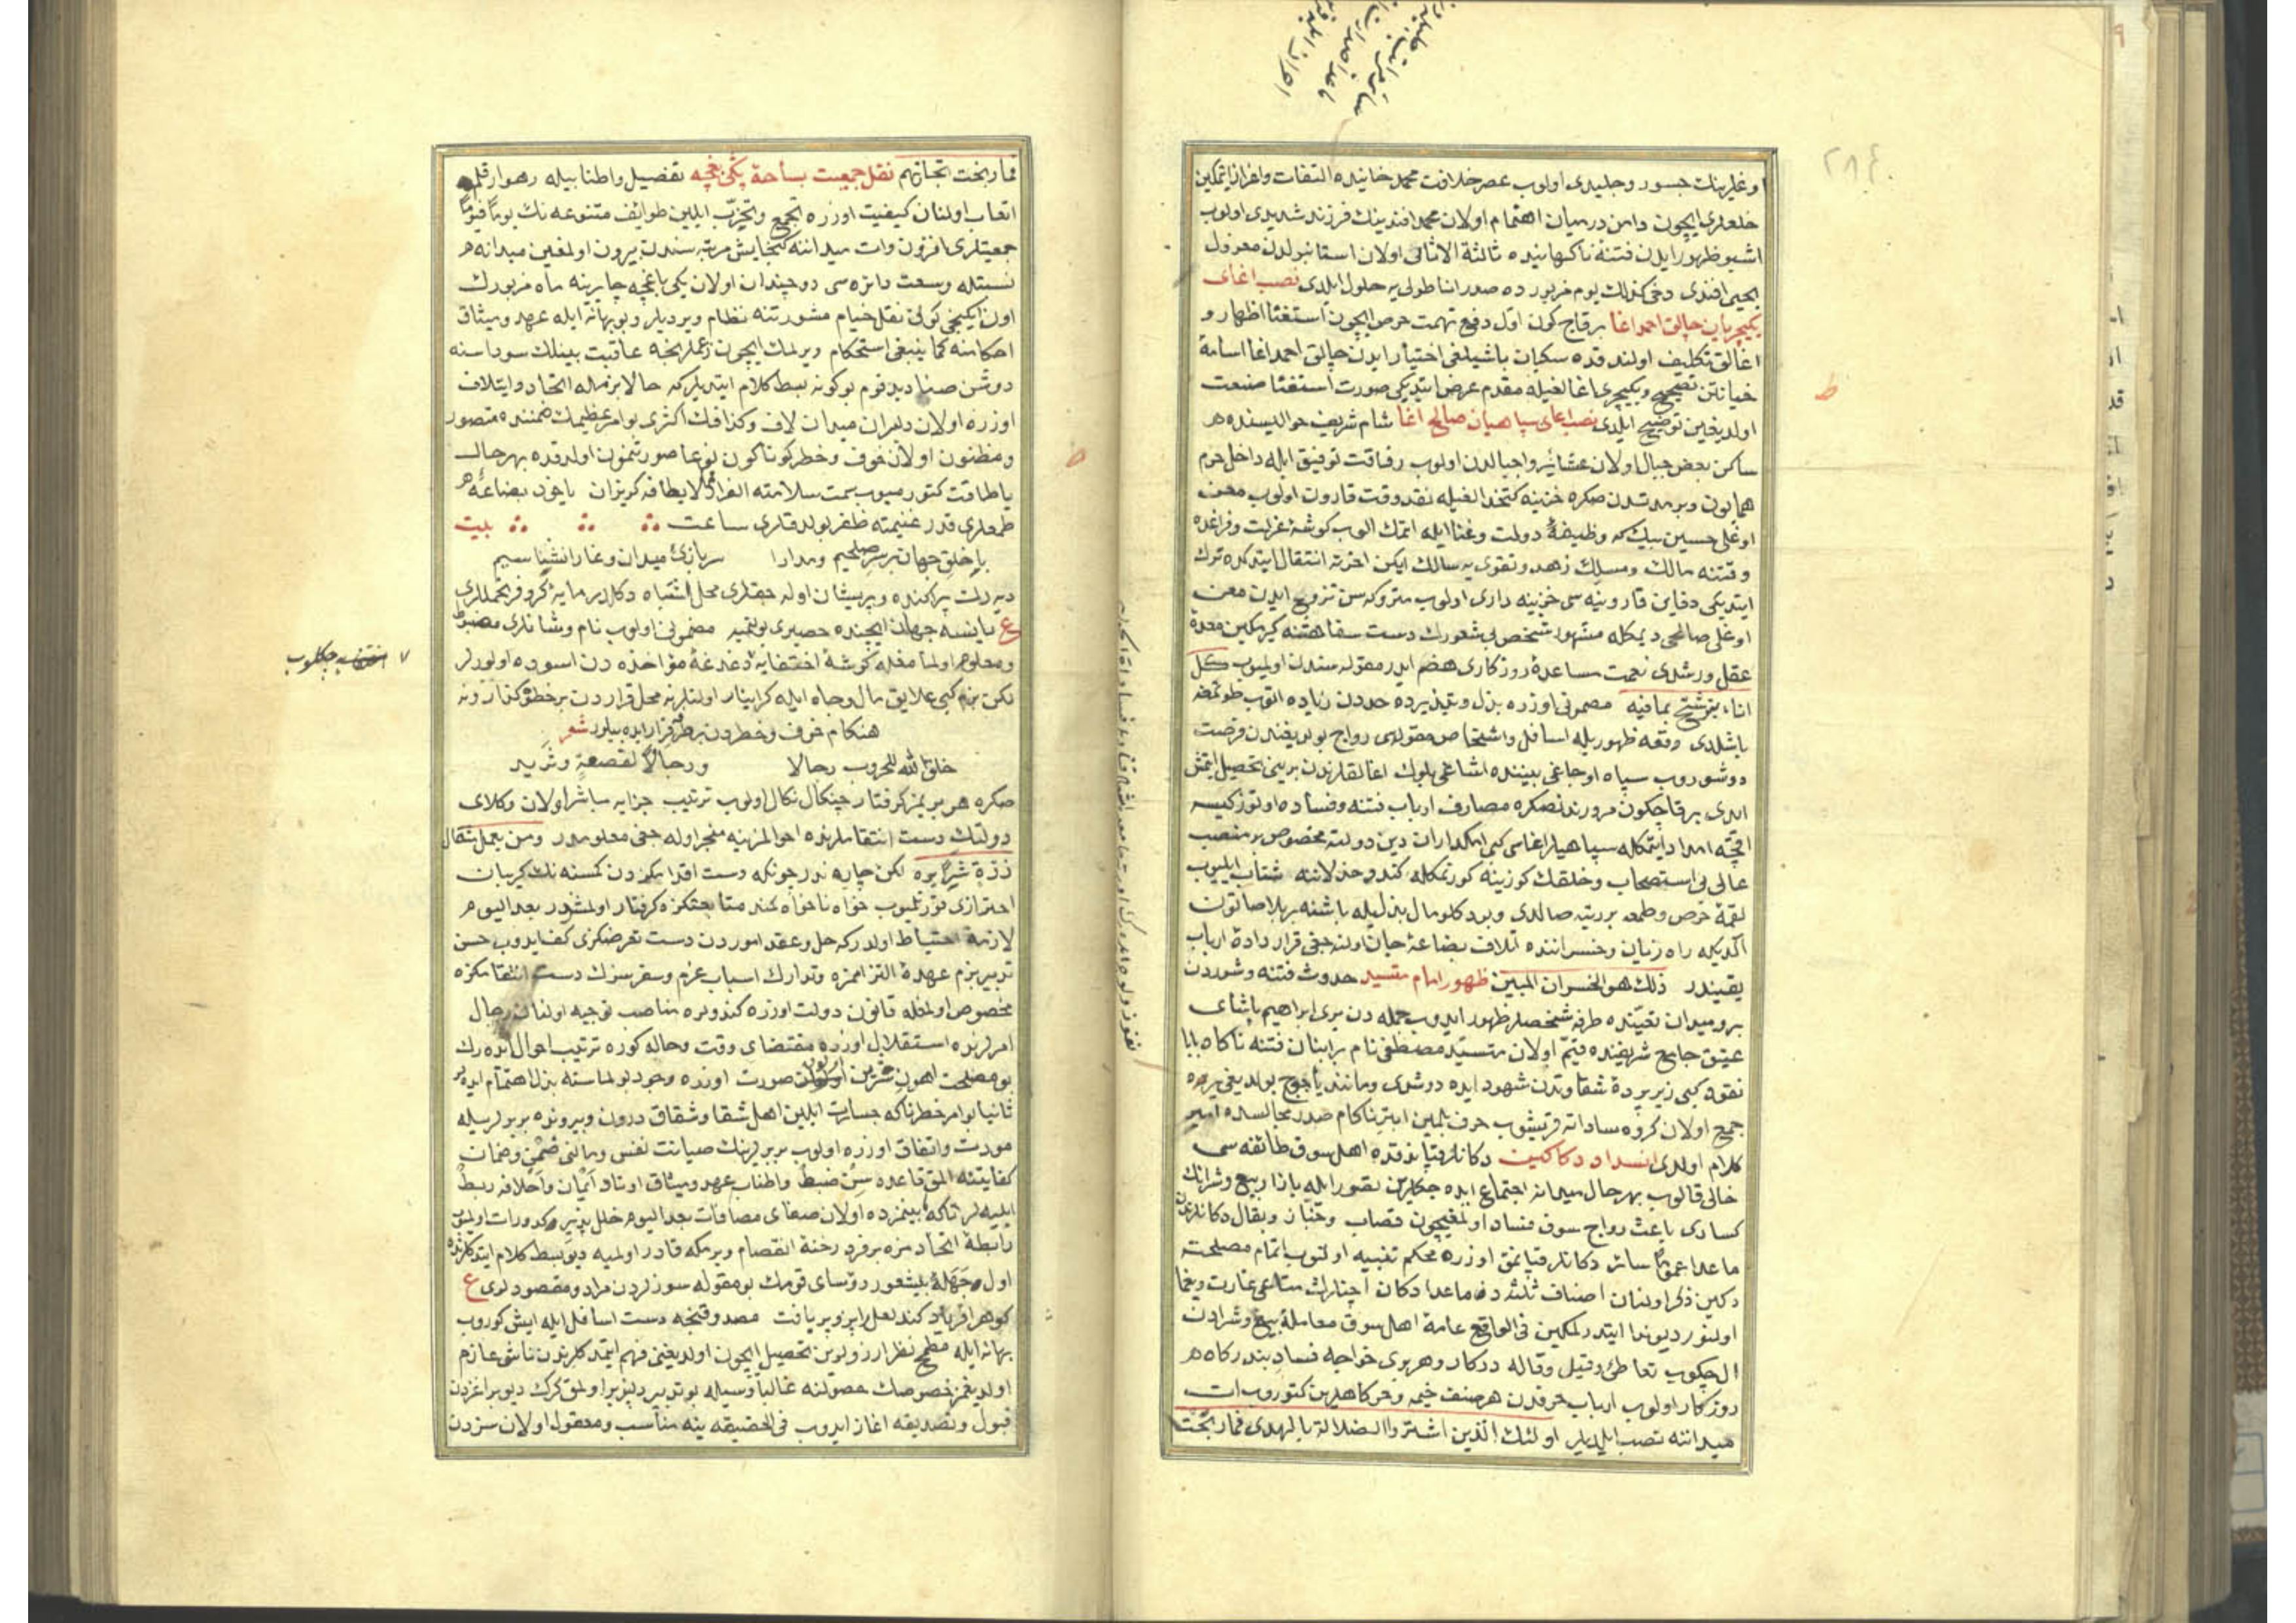 اوغلرینك جسور و جلیدی اولوب عصر خلافت محمد خانیده التفات و اقران ایتمكین
خلعلری ایچون دامن درمیان اهتمام اولان محمد افندینك فرزند شدیدی اولوب
اشبو ظهور ایدن فتنهٔ ناكهانیده ثالثة الاثافی اولان استانبولدن معزول
یحیی افندی دخی كذلك یوم مزبورده صدر اناطولی یه حلول ایلدی نصب اغای
یكیچریان چالق احمد اغا برقاچ كون اول دفع تهمت حرص ایچون استغنا اظهار و
اغالق تكلیف اولندقده سكبان باشیلغی اختیار ایدن چالق احمد اغا اسامهٔ
خیانتن تصحیح و یكیچری اغالغیله مقدم عرض ایتدیكی صورت استغنا صنعت
اولدیغین توضیح ایلدی نصب اغای سپاهیان صالح اغا شام شریف حوالیسنده
ساكن بعض جبال اولان عشائر واجیالدن اولوب رفاقت توفیق ایله داخل حرم
همایون و بر مدتدن صكره خزینه كتخدالغیله نقد وقت قارون اولوب معن
اوغلی حسین بیك كه وظیفهٔ دولت و غنا ایله اتمك الوب كوشهٔ عزلت و فراغده
وقتنه مالك و مسلك زهد و تقوی یه سالك ایكن اخرته انتقال ایتدكده ترك
ایتدیكی دفاین قارونیه سی خزینه داری اولوب متروكه سن تزوج ایدن معن
اوغلی صالحی دیمكله مشهور شخص بی شعورك دست سفاهتنه كیرمكین معدهٔ
عقل و رشدی نعمت مساعدهٔ روزكاری هضم ایدر مقوله سندن اولمیوب كل
اناء یترشح بما فیه مضمونی اوزره بذل و تبذیرده حددن زیاده الوب طوتمغه
باشلدی وقعه ظهوریله اسافل و اشخاص مقوله سی رواج بولدیغندن فرصت
دوشوروب سپاه اوجاغی بیننده اشاغی بلوك اغالقلرندن برینی تحصیل ایتمش
ایدی برقاچ كون مرورندنصكره مصارف ارباب فتنه و فساده اوتوز كیسه
اقچه امداد ایتمكله سپاهیلر اغاسی كبی امكداران دین دولته مخصوص بر منصب
عالی یی استصحاب و خلقك كوزینه كورنمكله كندو خذلاننه شتاب ایلیوب
لقمهٔ حرص و طمعه بر دیته صالدی و بو دكلو مال بذلیله باشنه بر بلا صاتون
الدیكله راه زیان و خسراننده اتلاف بضاعهٔ جان اولنه جغی قرار دادهٔ ارباب
یقیندر ذلك هو الخسران المبین ظهور امام متسید حدوث فتنه و شوردن
برو میدان تعینده طرفه شخصلر ظهور ایدوب جمله دن بری ابراهیم پاشای
عتیق جامع شریفنده قیم اولان متسید مصطفی نام بر ابنان فتنه ناكاه بابا
جمیع اولان كروه ساداته قریشوب حرف بلمین ابتر ناكام صدر مجالسده امیر
كلام اولدی انسداد دكاكین دكانلر قپاندقده اهل سوق طائفه سی
خالی قالوب بهر حال میدانه اجتماع ایده جكلرین تصور ایله بازار بیع و شرانك
كسادی باعث رواج سوق فساد اولمغیچون قصاب و خباز و بقال دكانلرندن
ماعدا عموما سائر دكانلر قپانمق اوزره محكم تنبیه اولنوب اتمام مصلحته
دكین ذكر اولنان اصناف ثلثه دن ماعدا دكان اچنلرك متاعی غارت و یغما
اولنور دیو ندا ایتدرلمكین فی الواقع عامهٔ اهل سوق معاملهٔ بیع و شرادن
ال چكوب تعاطئ و قیل و قاله دركار و هر بری خواجه فساد بندركاه
روزكار اولوب ارباب حرفدن هر صنف خیمه و خركاهلرین كتوروب ات
میداننه نصب ایلدیلر اولئك الذین اشتروا الضلالة بالهدی فما ربحت
فما ربحت تجارتهم نقل جمعیت بساحة یكی باغچه تفصیل و اطنابیله رهوار قلم
اتعاب اولنان كیفیت اوزره تجمع و تحزب ایلین طوائف متنوعه نك یوما فیوما
جمعیتلری افزون وات میداننه كنجایش مرتبه سندن بیرون اولمغین میدانه
نسبتله وسعت دائره سی دوچندان اولان یكی باغچه چایرینه ماه مزبورك
اون ایكنجی كونی نقل خیام مشورتنه نظام ویردیلر و بو بهانه ایله عهد و میثاق
احكامنه كما ینبغی استحكام ویرلمك ایچون زعملرنجه عاقبت بینلك سوداسنه
دوشن صنادید قوم بو كونه بسط كلام ایتدیلر كه حالا بزمله اتحاد و ایتلاف
اوزره اولان دلیران میدان لاف و كذافك اكثری بو امر عظیمك ضمننده متصور
و مظنون اولان خوف و خطر كوناكون نوعا صورتنمون اولدقده بهر حال
یا طاقت كتورمیوب سمت سلامته الفرار مما لا یطاق كریزان یاخود بضاعهٔ
طمعلری قدر غنیمته ظفر بولدقلری ساعت بیت
با خلق جهان بر سر صلحیم و مدارا سربازئ میدان وغا را نشناسیم
دیه رك پراكنده و پریشان اوله جقلری محل اشتباه دكلدر
ع یانسه جهان ایچنده حصیری بولنمیه مضمونی اولوب نام و شانلری مضبوط
و معلوم اولمامغله كوشهٔ اختفایه دغدغهٔ مؤاخذه دن اسوده اولورلر
لكن بزم كبی علایق مال و جاه ایله كرانبار اولنلر نه محل قراردن بر خطوه كنار و نه
هنكام خوف و خطردن بر طرفه فرار ایده بیلور شعر
خلق الله للحروب رجالا ورجالا لقصعة وثرید
صكره هر بریمز كرفتار چنكال نكال اولوب ترتیب جزایه مباشر اولان وكلای
دولتك دست انتقاملرنده احوالمز نیه منجر اوله جغی معلومدر ومن یعمل مثقال
ذرة شرا یره لكن چاره ندر چونكه دست اقدامزدن كمسنه نك كریبان
احترازی قورتلمیوب خواه ناخواه كمند متابعتمزه كرفتار اولمشدر بعد الیوم
لازمهٔ احتیاط اولدر كه حل و عقد اموردن دست تعرضمزی كف ایدوب حسن
تدبیر بزم عهدهٔ التزاممزه و تدارك اسباب عزم و سفر سزك دست انتقامكزه
مخصوص اولمغله قانون دولت اوزره كندولره مناصب توجیه اولنان رجال
امرلرنده استقلال اوزره مقتضای وقت و حاله كوره ترتیب احوال ایده رك
بو مصلحت اهون شرین اولور صورت اوزره وجود بولماسنه بذل اهتمام ایده لر
ثانیا بو امر خطرناكه جسارت ایلین اهل شقا و شقاق درون و بیرونده بربرلریله
مودت و اتفاق اوزره اولوب بربرلرینك صیانت نفس و مالنی ضمن و ضمان
كفایتنه المق قاعده سن ضبط و اطناب عهد و میثاق اوتاد ایمان و احلافه ربط
ایلیه لر تاكه بینمزده اولان صفای مصافات بعد الیوم خلل پذیر كدورات اولمیوب
رابطهٔ اتحادمزه بر فرد رخنهٔ انفصام ویرمكه قادر اولمیه دیو بسط كلام ایتدكلرنده
اول جهلهٔ بیشعور رؤسای قومك بو مقوله سوزلردن مراد و مقصودلری ع
بهانه ایله مطمح نظر ارزولرین تحصیل ایچون اولدیغنی فهم ایتمدكلرندن ناشی عازم
قبول و تصدیقه اغاز ایدوب فی الحقیقه ینه مناسب و معقول اولان سزدن